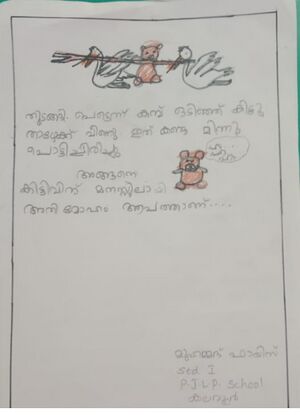 തുടങ്ങി. പെട്ടെന്ന് കമ്പ് ഒടിഞ്ഞ് കിട്ടു
താഴേക്ക് വീണു ഇത് കണ്ട മിന്നു
പൊട്ടിച്ചിരിച്ചു
അങ്ങനെ
കിട്ടുവിന് മനസ്സിലായി
അതിമോഹം ആപത്താണ്....
മുഹമ്മദ് ഫായിസ്
Std I
P.J.L.P. School
കലവൂർ